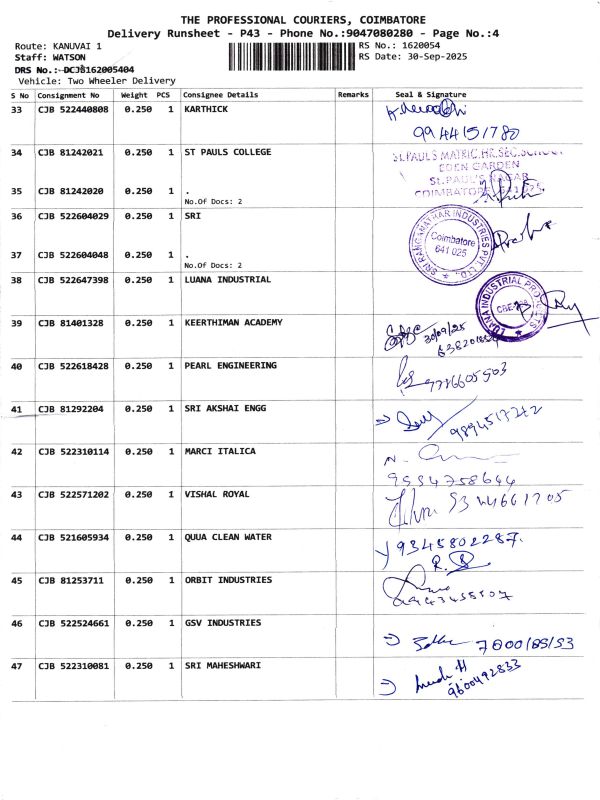 THE PROFESSIONAL COURIERS, COIMBATORE
Delivery Runsheet - P43 - Phone No.:9047080280 - Page No.:4
Route: KANUVAI 1
RS No.: 1620054
Staff: WATSON
RS Date: 30-Sep-2025
DRS No.: DCJB162005404
Vehicle: Two Wheeler Delivery
S No Consignment No Weight PCS Consignee Details Remarks Seal & Signature
33 CJB 522440808 0.250 1 KARTHICK
9944151780
34 CJB 81242021 0.250 1 ST PAULS COLLEGE
ST.PAUL'S MATRIC.HR.SEC.SCHOOL
EDEN GARDEN
ST.PAUL'S NAGAR
COIMBATORE - 641 025
35 CJB 81242020 0.250 1 .
No.Of Docs: 2
36 CJB 522604029 0.250 1 SRI
SRI RANGANATHAR INDUSTRIES PVT. LTD.
Coimbatore
641 025
37 CJB 522604048 0.250 1 .
No.Of Docs: 2
38 CJB 522647398 0.250 1 LUANA INDUSTRIAL
LUANA INDUSTRIAL PRODUCTS
39 CJB 81401328 0.250 1 KEERTHIMAN ACADEMY
30/09/25
40 CJB 522618428 0.250 1 PEARL ENGINEERING
41 CJB 81292204 0.250 1 SRI AKSHAI ENGG
9894517242
42 CJB 522310114 0.250 1 MARCI ITALICA
43 CJB 522571202 0.250 1 VISHAL ROYAL
44 CJB 521605934 0.250 1 QUUA CLEAN WATER
9345802287.
45 CJB 81253711 0.250 1 ORBIT INDUSTRIES
46 CJB 522524661 0.250 1 GSV INDUSTRIES
47 CJB 522310081 0.250 1 SRI MAHESHWARI
9600492833